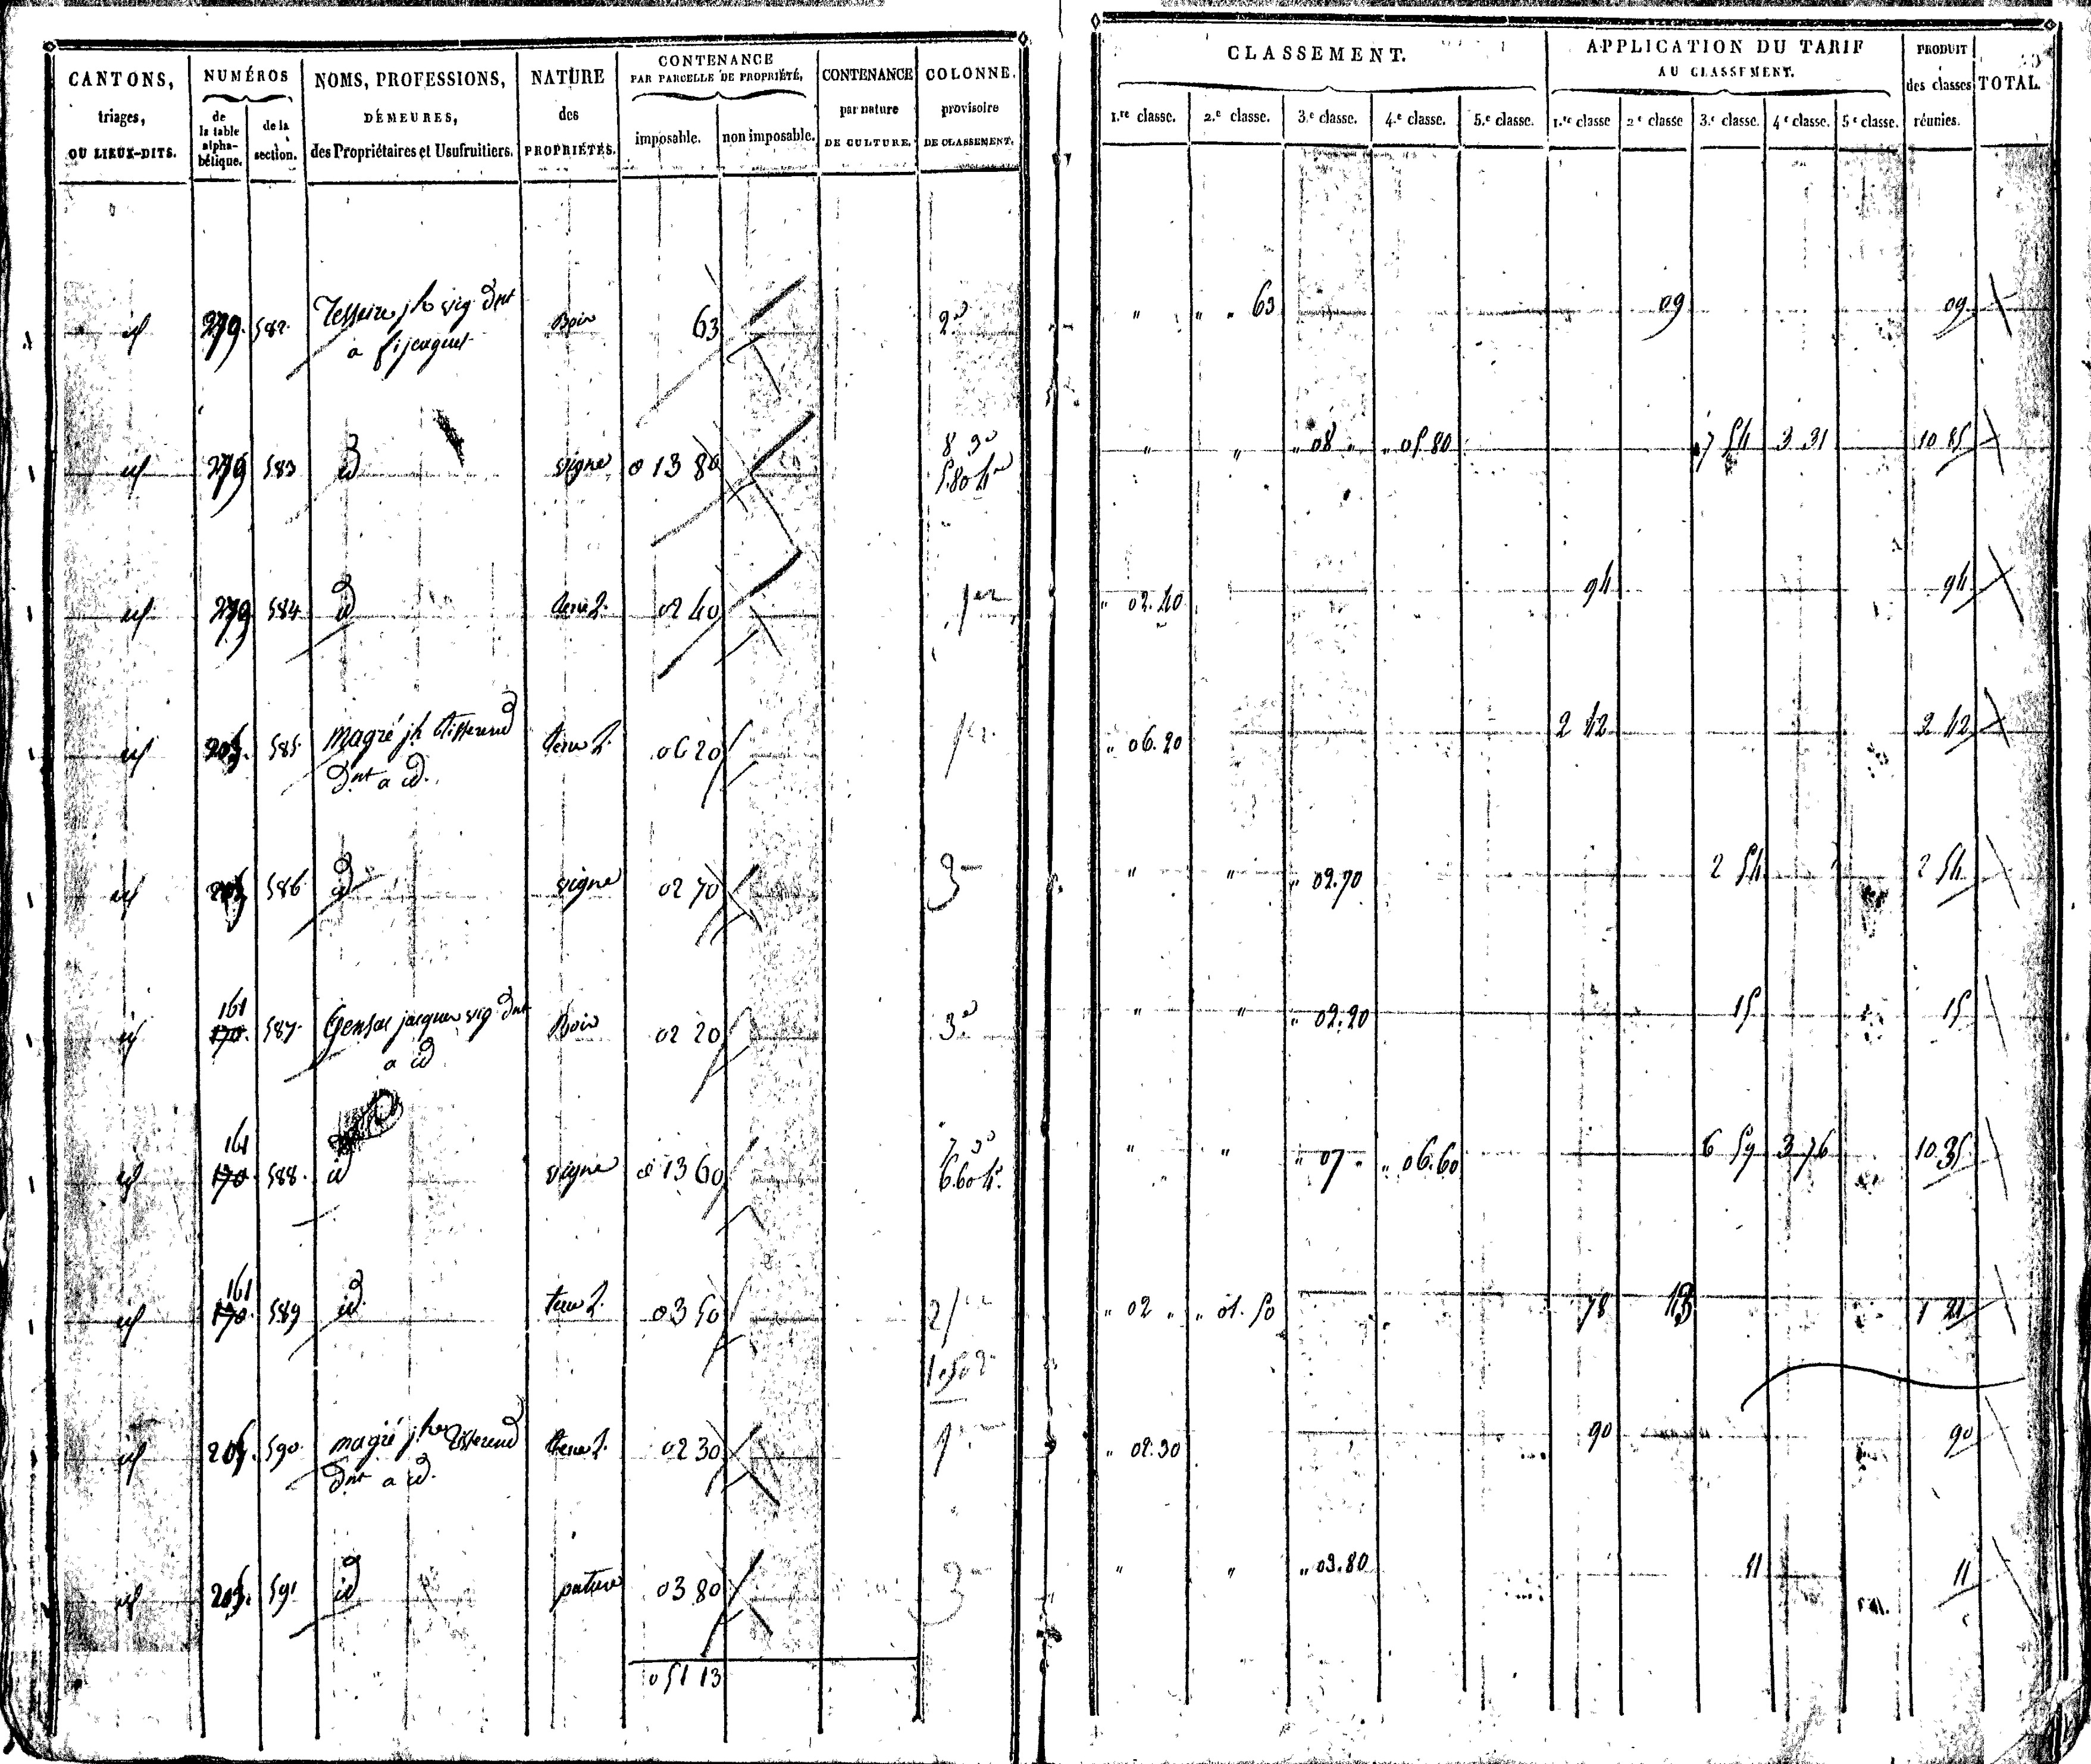 CANTONS, triages, OU LIEUX-DITS. | NUMÉROS de la table alpha-bétique. | de la section. | NOMS, PROFESSIONS, DEMEURES, des Propriétaires et Usufruitiers. | NATURE des PROPRIÉTÉS. | CONTENANCE PAR PARCELLE DE PROPRIÉTÉ, imposable. | non imposable. | CONTENANCE par nature DE CULTURE. | COLONNE provisoire DE CLASSEMENT.
CLASSEMENT. 1.re classe. | 2.e classe. | 3.e classe. | 4.e classe. | 5.e classe. | APPLICATION DU TARIF AU CLASSEMENT. 1.re classe | 2e classe | 3.e classe. | 4e classe. | 5e classe. | PRODUIT des classes réunies. | TOTAL.
id 279. 582. jh vig dnt Bois 63 2e " " " 63 09 09
a
id 279 583 id vigne 0 13 80 8 3e " " " 08 " " 05 80 7 54 3 31 10 85
5.80 4e
id 279 584 id terre l. 02 40 1re " 02.40 94 94
id 205. 585. magré jh tisserend terre l. 06 20 1re " 06.20 2 42 2 42
dnt a id.
id 205 586 id vigne 02 70 3 " " " 02.70 2 54 2 54
id 161 170. 587. Gensac jacques vig dnt Bois 02 20 3e " " " 02.20 15 15
a id
id 161 170 588. id vigne 0 13 60 7 3e " " " 07 " " 06.60 6 59 3 76 10 35
6.60 4e.
id 161 170. 589 id. terre l. 03 50 2 1re " 02 " " 01.50 78 43 1 21
1.50 2
id 205. 590. magré jh tisserend terre l. 02 30 1re " 02.30 90 90
dnt a id.
id 205. 591 id pature 03 80 3 " " " 03.80 11 11
0 51 13